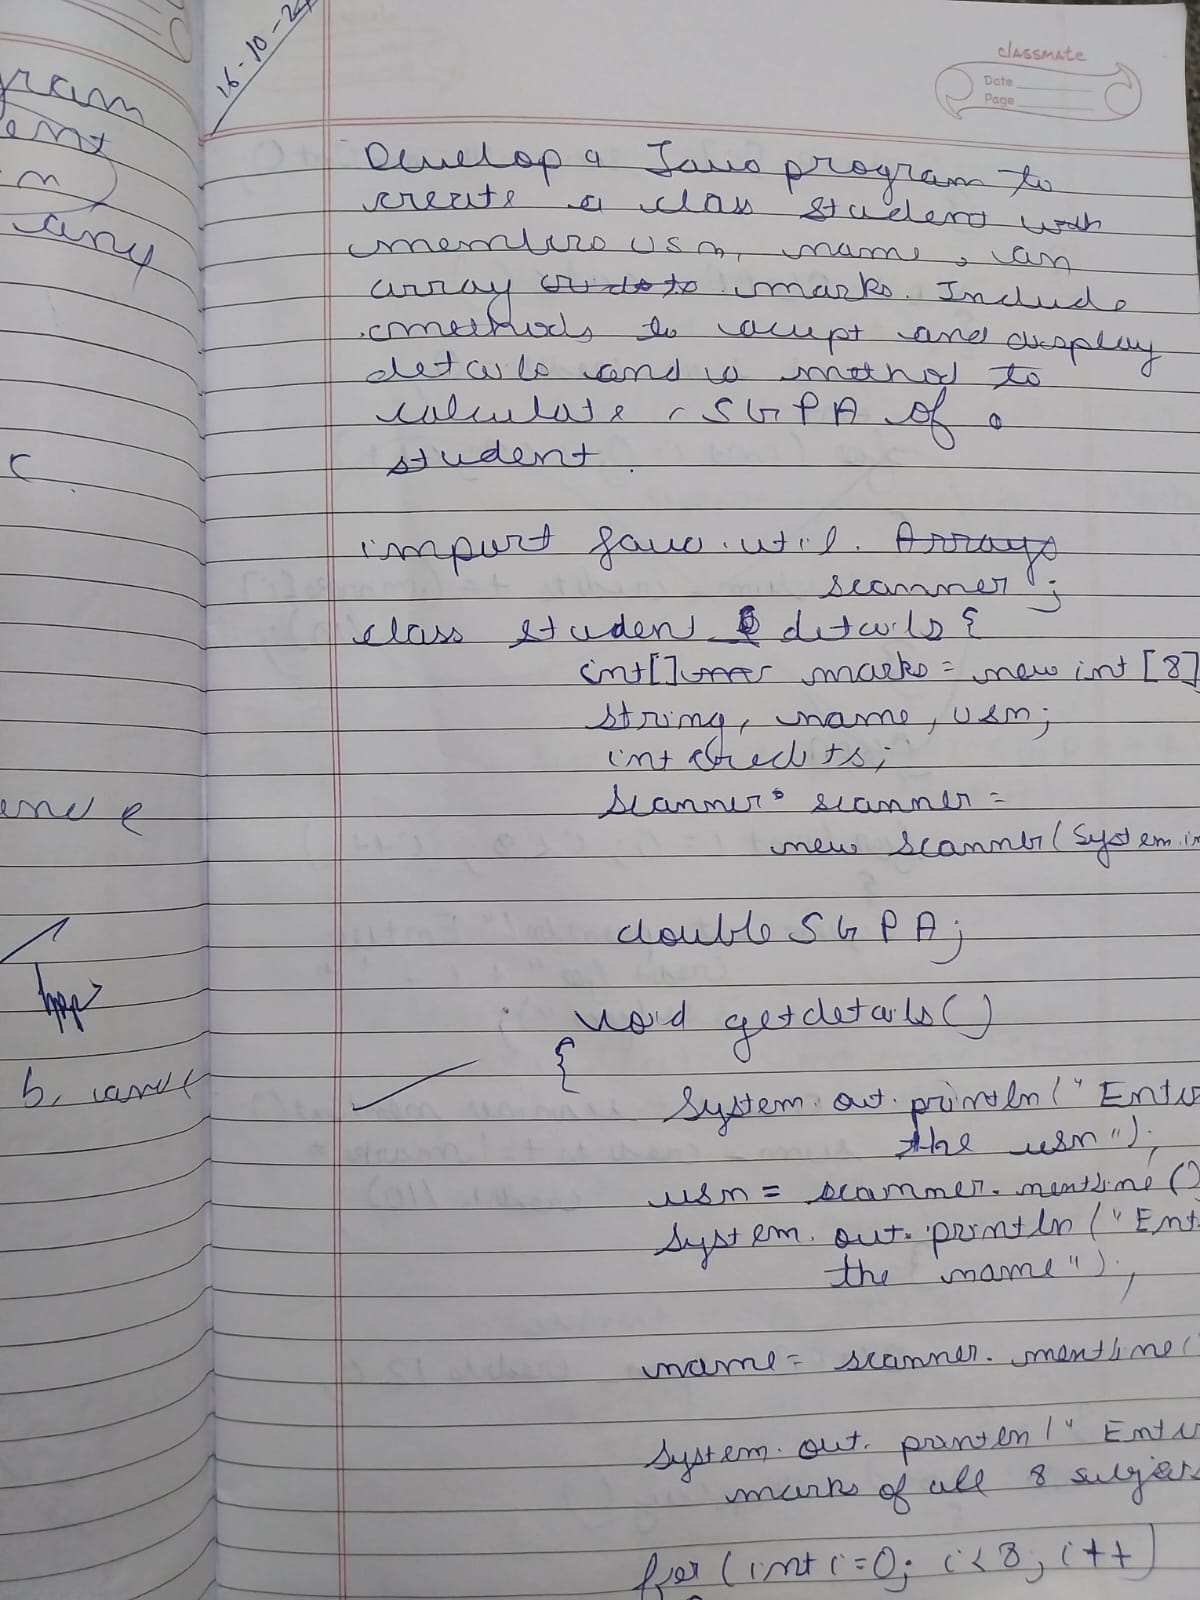 gram
ent
n)
any
c
ence
b, and
16-10-24
classmate
Date
Page
Develop a Java program to
create a class student with
members usn, name, an
array marks. Include
methods to accept and display
details and a method to
calculate SGPA of a
student.
import java.util. Arrays
scanner;
class student details {
int[] marks = new int [8]
string, name, usn;
int credits;
Scanner scanner =
new scanner(System.in
double SGPA;
void getdetails()
{
System.out.println("Enter
the usn");
usn = scanner.nextLine()
System.out.println("Ent
the name");
name = scanner.nextline(
System.out.println("Ente
marks of all 8 subjects
for (int i=0; i<8; i++)